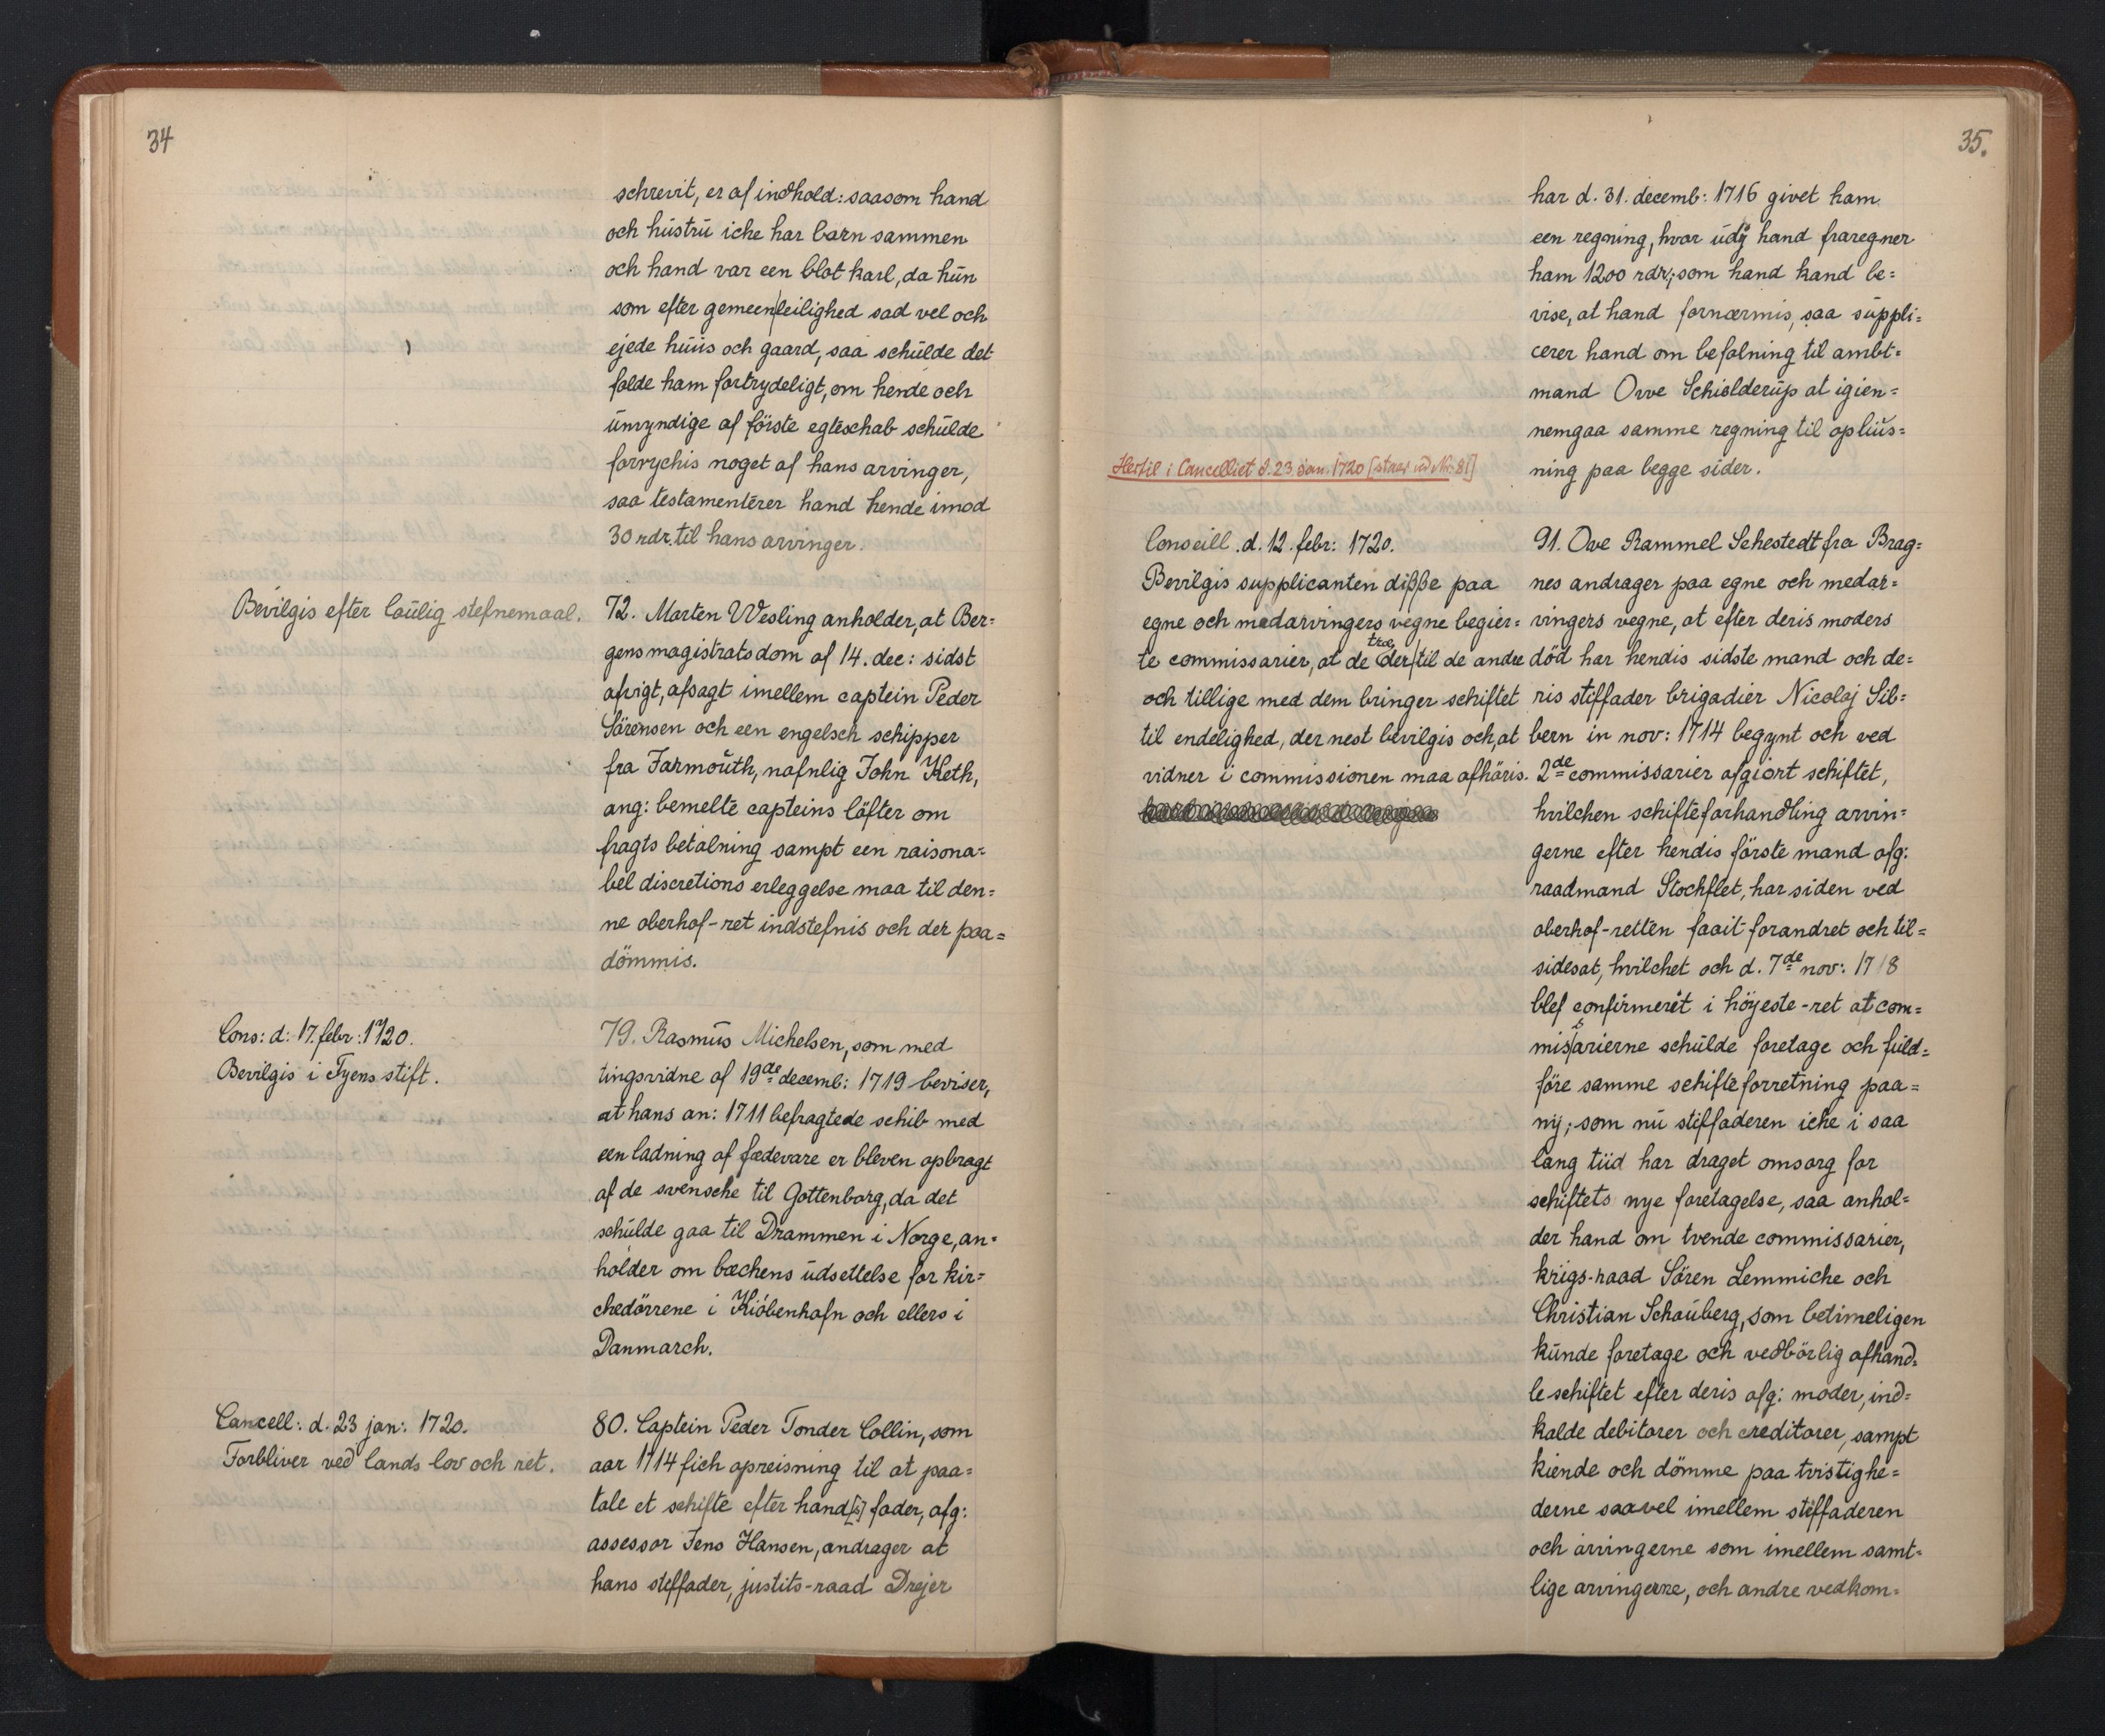 34
schrevit, er af indhold: saasom hand
och hústrú iche har barn sammen
och hand var een blot karl, da hún
som efter gemeen leilighed sad vel och
ejede húús och gaard, saa schúlde det
falde ham fortrydeligt, om hende och
úmyndige af förste egteschab schúlde
forrychis noget af hans arvinger,
saa testamenterer hand hende imod
30 rdr. til hans arvinger.
Bevilgis efter laúlig stefnemaal.
72. Marten Wesling anholder, at Ber=
gens magistrats dom af 14. dec: sidst
afvigt, afsagt imellem captein Peder
Sörensen och een engelsch schipper
fra Jarmoúth, nafnlig John Keth,
ang: bemelte capteins löfter om
fragts betalning sampt een raisona=
bel discretions erleggelse maa til den=
ne oberhof-ret indstefnis och der paa=
dömmis.
Cons: d: 17. febr: 1720.
Bevilgis i Fyens stift.
79. Rasmús Michelsen, som med
tingsvidne af 19de decemb: 1719 beviser,
at hans an: 1711 befragtede schib med
een ladning af fædevare er bleven opbragt
af de svensche til Gottenborg, da det
schúlde gaa til Drammen i Norge, an=
holder om bæchens údsettelse for kir=
chedörrene i Kiöbenhafn och ellers i
Danmarch.
Cancell: d. 23 jan: 1720.
Forbliver ved lands lov och ret.
80. Captein Peder Tonder Collin, som
aar 1714 fich opreisning til at paa=
tale et schifte efter hand[s] fader, afg:
assessor Jens Hansen, andrager at
hans steffader, justits-raad Drejer
35.
har d. 31. decemb: 1716 givet ham
een regning, hvor údj hand fraregner
ham 1200 rdr; som hand kand be=
vise, at hand fornærmis, saa súppli=
cerer hand om befalning til ambt=
mand Ovve Schiolderúp at igien=
nemgaa samme regning til opliús=
ning paa begge sider.
Hertil i Cancelliet d. 23. jan. 1720 [strax ud Nr. 81]
Conseill. d. 12. febr: 1720.
Bevilgis supplicanten diße paa
egne och medarvingers vegne begier=
te commissarier, at de træder til de andre
och tillige med dem bringer schiftet
til endelighed, der nest bevilgis och, at
vidner i commissionen maa afhöris.
91. Ove Rammel Sehestedt fra Brag=
nes andrager paa egne och medar=
vingers vegne, at efter deris moders
död har hendis sidste mand och de=
ris stiffader brigadier Nicolaj Sib=
bern in nov: 1714 begynt och ved
2de commissarier afgiort schiftet,
hvilchen schifteforhandling arvin=
gerne efter hendis förste mand afg:
raadmand Stochflet, har siden ved
oberhof-retten faait forandret och til=
sidesat, hvilchet och d. 7de nov: 1718
blef confirmeret i höyeste-ret at com=
missarierne schúlde foretage och fuld=
före samme schifteforretning paa=
nÿ; som nú stiffaderen iche i saa
lang tiid har draget omsorg for
schiftets nye foretagelse, saa anhol=
der hand om tvende commissarier,
krigs-raad Sören Lemmiche och
Christian Schaúberg, som betimeligen
kúnde foretage och vedbörlig afhand=
le schiftet efter deris afg: moder, ind=
kalde debitorer och creditorer, sampt
kiende och dömme paa tvistighe=
derne saavel imellem stiffaderen
och arvingerne som imellem samt=
lige arvingerne, och andre vedkom=